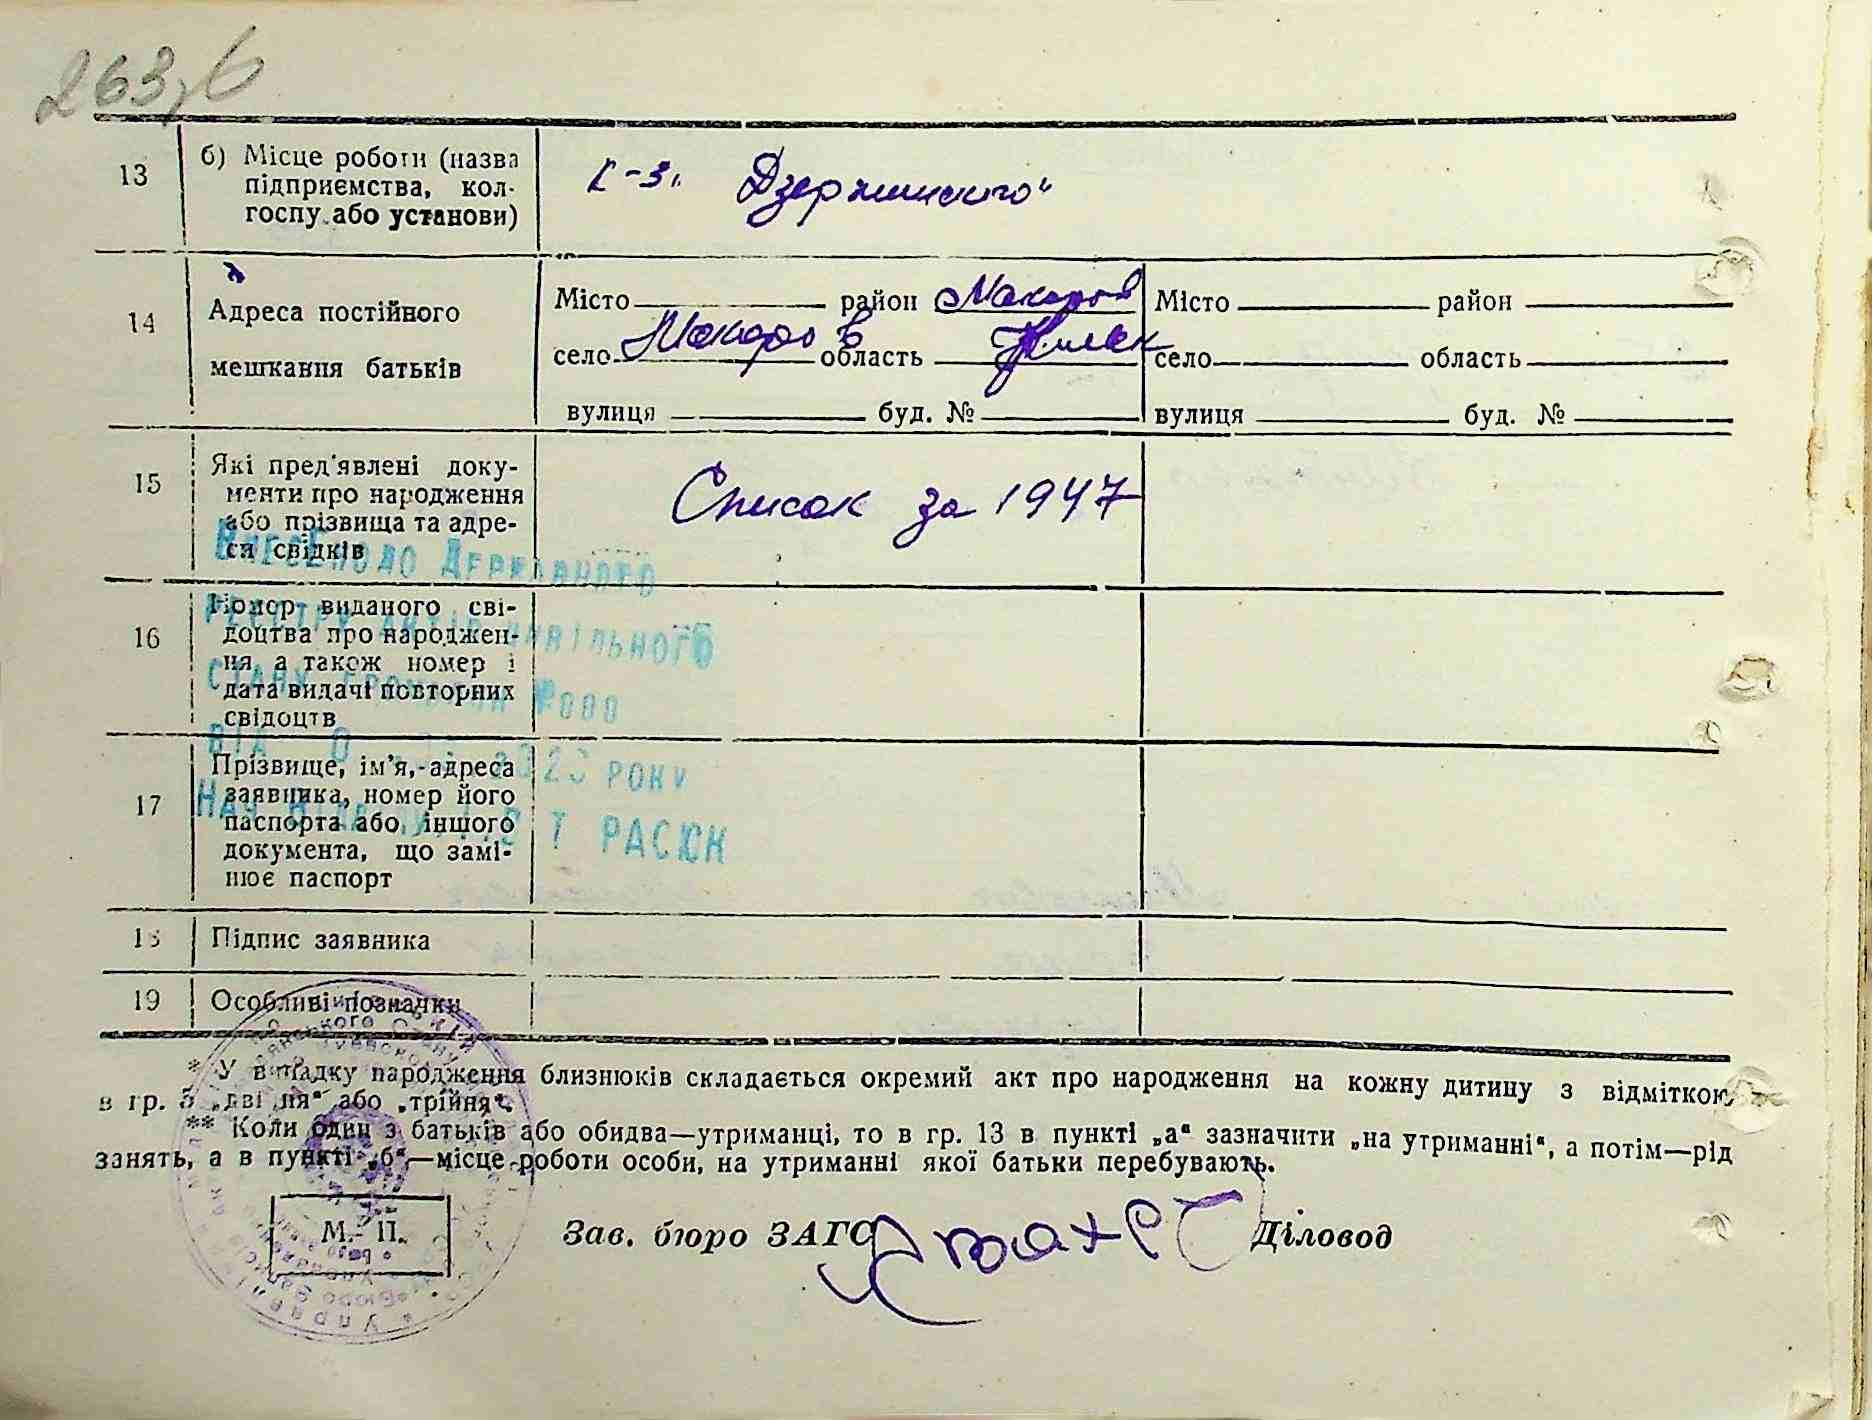 263,6
13
б) Місце роботи (назва
підприємства, кол-
госпу або установи)
к-з „Дзержинского“
14
Адреса постійного
мешкання батьків
Місто район Макаров
село Макаров область Київск
вулиця буд. №
Місто район
село область
вулиця буд. №
15
Які пред'явлені доку-
менти про народження
або прізвища та адре-
си свідків
Список за 1947
16
Номер виданого сві-
доцтва про народжен-
ня, а також номер і
дата видачі повторних
свідоцтв
17
Прізвище, ім'я, адреса
заявника, номер його
паспорта або іншого
документа, що замі-
нює паспорт
18
Підпис заявника
19
Особливі позначки
Внесено до Державного
реєстру актів цивільного
стану громадян
року
* У випадку народження близнюків складається окремий акт про народження на кожну дитину з відміткою
в гр. 5 „двійня“ або „трійня“.
** Коли один з батьків або обидва—утриманці, то в гр. 13 в пункті „а“ зазначити „на утриманні“, а потім—рід
занять, а в пункті „б“—місце роботи особи, на утриманні якої батьки перебувають.
М. П.
Зав. бюро ЗАГС
Діловод